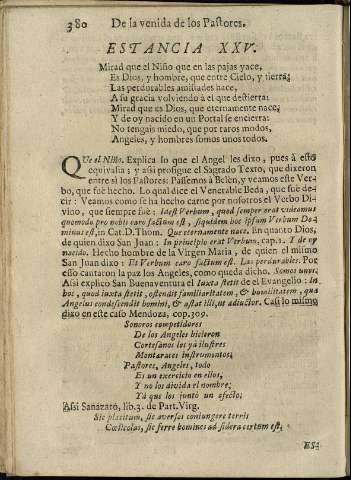 380 De la venida de los Pastores.
ESTANCIA XXV.
Mirad que el Niño que en las pajas yace,
Es Dios, y hombre, que entre Cielo, y tierra;
Las perdorables amistades nace,
A su gracia volviendo à el que destierra:
Mirad que es Dios, que eternamente nace;
Y de oy nacido en un Portal se encierra:
No tengais miedo, que por raros modos,
Angeles, y hombres somos unos todos.
QUe el Niño. Explica lo que el Angel les dixo, pues à esto
equivalia; y assi prosigue el Sagrado Texto, que dixeron
entre sì los Pastores: Passemos à Belen, y veamos este Ver-
bo, que fuè hecho. Lo qual dice el Venerable Beda, que fuè de-
cir: Veamos como se ha hecho carne por nosotros el Verbo Di-
vino, que siempre fuè: Idest Verbum, quod semper erat videamus
quomodo pro nobis caro factum est, siquidem hoc ipsum Verbum Do-
minus est, in Cat. D. Thom. Que eternamente nace. En quanto Dios,
de quien dixo San Juan: In principio erat Verbum, cap. 1. Y de oy
nacido. Hecho hombre de la Virgen Maria, de quien el mismo
San Juan dixo: Et Verbum caro factum est. Las perdurables. Por
esso cantaron la paz los Angeles, como queda dicho. Somos unos.
Assi explicò San Buenaventura el Iuxta stetit de el Evangelio: In
hoc, quod iuxta stetit, ostendit familiaritatem, & humilitatem, qua
Angelus condescendit homini, & astat illi, ut adiutor. Casi lo mismo
dixo en este caso Mendoza, cop. 309.
Sonoros competidores
De los Angeles hicieron
Cortesanos los yà ilustres
Montaraces instrumentos;
Pastores, Angeles, todo
Es un exercito en ellos,
Y no los divida el nombre;
Yà que los juntò un afecto;
Assi Sanazaro, lib. 3. de Part. Virg.
Sic placitum, sic aversos coniungere terris
Cœlicolas, sic ferre homines ad sidera certum est;
ES-